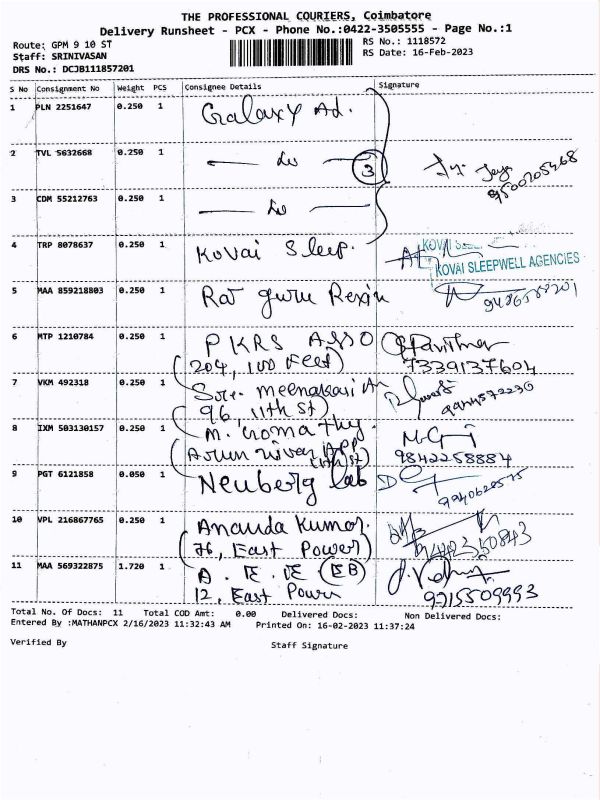 THE PROFESSIONAL COURIERS, Coimbatore
Delivery Runsheet - PCX - Phone No.:0422-3505555 - Page No.:1
Route: GPM 9 10 ST RS No.: 1118572
Staff: SRINIVASAN RS Date: 16-Feb-2023
DRS No.: DCJB111857201
S No Consignment No Weight PCS Consignee Details Signature
1 PLN 2251647 0.250 1 Galaxy Ad.
2 TVL 5632668 0.250 1 3
3 CDM 55212763 0.250 1
4 TRP 8078637 0.250 1 Kovai Sleep.
KOVAI SLEEPWELL AGENCIES
5 MAA 859218803 0.250 1 Raj guru Rexin
6 MTP 1210784 0.250 1 PKRS ASSO
(204, 100 Feet) 7339137604
7 VKM 492318 0.250 1 Sree meenakasi
(96, 11th St)
8 IXM 503130157 0.250 1 M. Gomathy.
9842258884
9 PGT 6121858 0.050 1 Neuberg lab
10 VPL 216867765 0.250 1 Ananda Kumar.
(76, East Power)
11 MAA 569322875 1.720 1 A. E. E (EB)
12, East Power 9715509993
Total No. Of Docs: 11 Total COD Amt: 0.00 Delivered Docs: Non Delivered Docs:
Entered By :MATHANPCX 2/16/2023 11:32:43 AM Printed On: 16-02-2023 11:37:24
Verified By Staff Signature